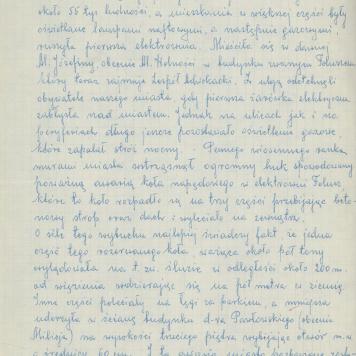 około 55 tys ludności, a mieszkania w większej części były
oświetlane lampami naftowymi, a następnie gazowymi
ruszyła pierwsza elektrownia. Mieściła się w dawnej
obecnie M. Wolności w budynku
który teraz zajmuje Zespół Adwokacki. Z ulgą odetchnęli
obywatele naszego miasta, gdy pierwsza żarówka elektryczna
zabłysła nad miastem. Jednak na ulicach jak i na
peryferiach długo jeszcze pozostawało oświetlenie gazowe,
które zapalał stróż nocny. - Pewnego wiosennego ranka
murami miasta wstrząsnął ogromny huk spowodowany
poważną awarią koła napędowego w elektrowni
które to koło rozpadło się na trzy części przebijając beto-
nowy strop oraz dach i wyleciało na zewnątrz.
O sile tego wybuchu najlepiej świadczy fakt, że jedna
część tego rozerwanego koła ważąca około pół tony
wylądowała na t. zw. śluzie w odległości około 200 m.
od więzienia wdzierając się na pół metra w ziemię.
Inna część poleciała na łęgi za parkiem, a mniejsza
uderzyła w ścianę budynku d-ra Pawłowskiego (obecnie
Milicja) na wysokości trzeciego piętra wybijając otwór
o średnicy 60 cm. I ta awaria miasta